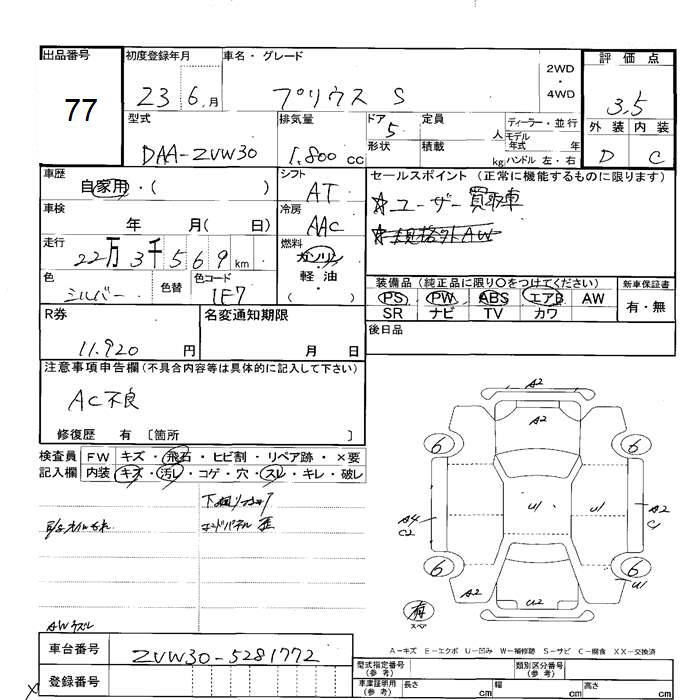 出品番号
77
初度登録年月
23 6月
車名・グレード
プリウス S
2WD
・
4WD
評価点
3.5
外装 内装
D C
型式
DAA-ZVW30
排気量
1.800 cc
ドア
5
形状
定員
人
積載
kg
ディーラー・並行
モデル
年式 年
ハンドル 左・右
車歴
自家用・( )
シフト
AT
セールスポイント (正常に機能するものに限ります)
☆ユーザー買取車
車検
年 月( 日)
冷房
AAC
走行
22万3千569km
燃料
ガソリン
軽油
( )
色
シルバー
色替
色コード
1E7
装備品 (純正品に限り○をつけてください)
PS PW ABS エアB AW
SR ナビ TV カワ
新車保証書
有・無
R券
11.920 円
名変通知期限
月 日
後日品
注意事項申告欄 (不具合内容等は具体的に記入して下さい)
AC不良
修復歴 有 〔箇所 〕
検査員
記入欄
FW キズ・飛石・ヒビ割・リペア跡・×要
内装 キズ・汚レ・コゲ・穴・スレ・キレ・破レ
エンドパネル 歪
AWキズ
A2
A2
6 6
U1 U1
A4
C2
A2
C1
6 6
A2
U2
U1
有
スペア
A−キズ E−エクボ U−凹み W−補修跡 S−サビ C−腐食 XX−交換済
車台番号
ZVW30-5281772
登録番号
型式指定番号
(参考)
類別区分番号
(参考)
車庫証明用
(参考)
長さ cm
幅 cm
高さ cm